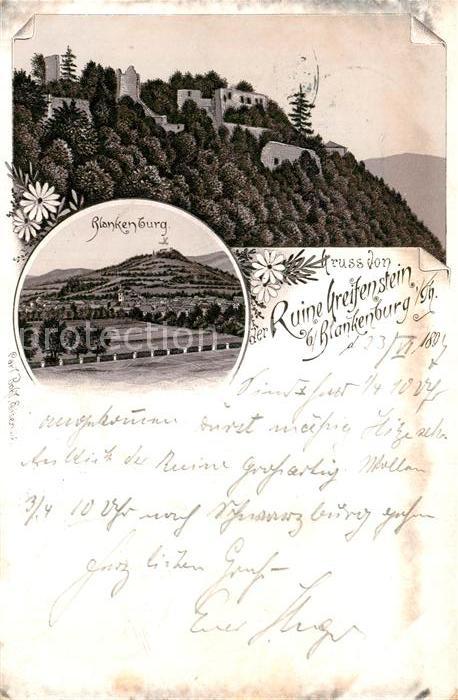 Blankenburg.
Gruss von
der Ruine Greifenstein
b/Blankenburg i/Th.
d. 23/VI. 189
Sind hier 1/4 10 Uhr
angekommen Durst mäßig Hitze sehr
Ausblick der Ruine Großartig Wollen
3/4 10 Uhr nach Schwarzburg gehen
Herzlichen Gruß
Euer Hugo
Carl
protectionphoto